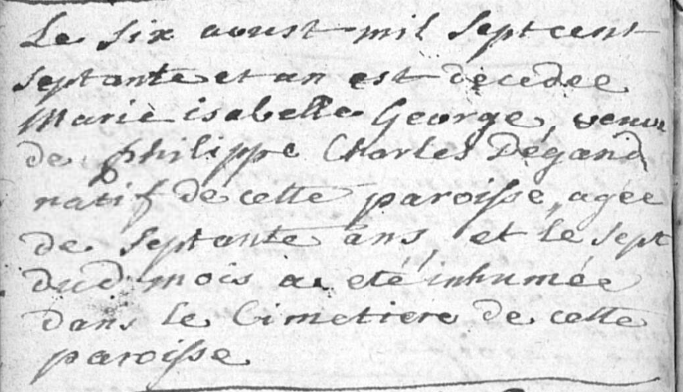 Le six aoust mil sept cent
septante et un est decedee
Marie isabelle George, veuve
de philippe Charles Dégand
natif de cette paroisse, agée
de septante ans, et le sept
dud mois a été inhumée
dans le Cimetiere de cette
paroisse